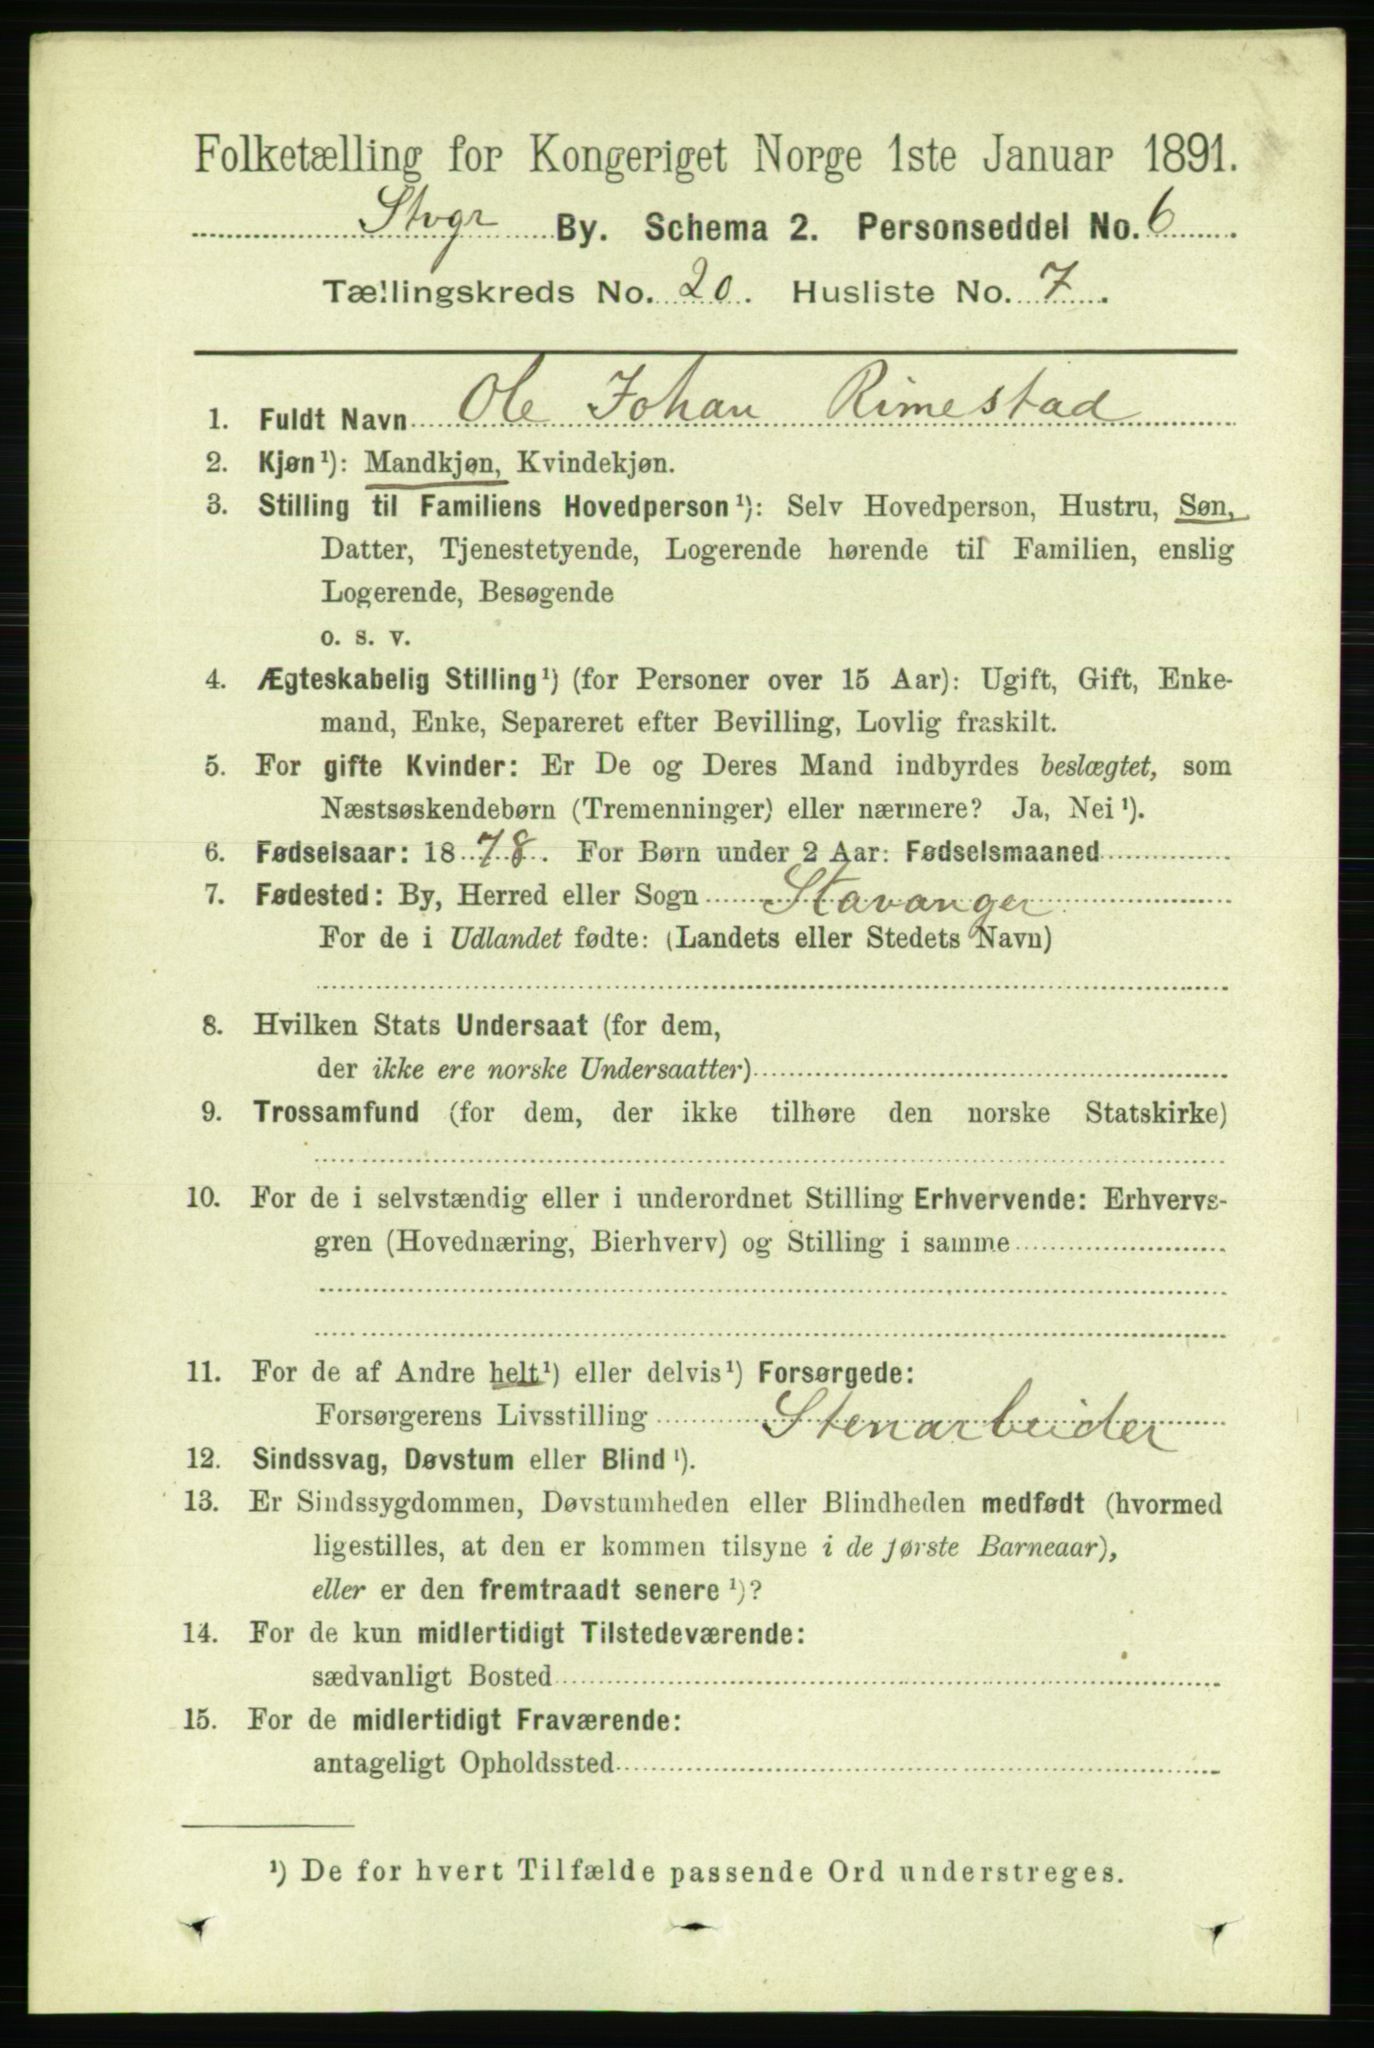 Folketælling for Kongeriget Norge 1ste Januar 1891.
Stvgr By. Schema 2. Personseddel No. 6
Tællingskreds No. 20. Husliste No. 7.
1. Fuldt Navn Ole Johan Rimestad
2. Kjøn¹): Mandkjøn, Kvindekjøn.
3. Stilling til Familiens Hovedperson¹): Selv Hovedperson, Hustru, Søn,
Datter, Tjenestetyende, Logerende hørende til Familien, enslig
Logerende, Besøgende
o. s. v.
4. Ægteskabelig Stilling¹) (for Personer over 15 Aar): Ugift, Gift, Enke-
mand, Enke, Separeret efter Bevilling, Lovlig fraskilt.
5. For gifte Kvinder: Er De og Deres Mand indbyrdes beslægtet, som
Næstsøskendebørn (Tremenninger) eller nærmere? Ja, Nei¹).
6. Fødselsaar: 1878. For Børn under 2 Aar: Fødselsmaaned
7. Fødested: By, Herred eller Sogn Stavanger
For de i Udlandet fødte: (Landets eller Stedets Navn)
8. Hvilken Stats Undersaat (for dem,
der ikke ere norske Undersaatter)
9. Trossamfund (for dem, der ikke tilhøre den norske Statskirke)
10. For de i selvstændig eller i underordnet Stilling Erhvervende: Erhvervs-
gren (Hovednæring, Bierhverv) og Stilling i samme
11. For de af Andre helt¹) eller delvis¹) Forsørgede:
Forsørgerens Livsstilling Stenarbeider
12. Sindssvag, Døvstum eller Blind¹).
13. Er Sindssygdommen, Døvstumheden eller Blindheden medfødt (hvormed
ligestilles, at den er kommen tilsyne i de første Barneaar),
eller er den fremtraadt senere¹)?
14. For de kun midlertidigt Tilstedeværende:
sædvanligt Bosted
15. For de midlertidigt Fraværende:
antageligt Opholdssted
¹) De for hvert Tilfælde passende Ord understreges.